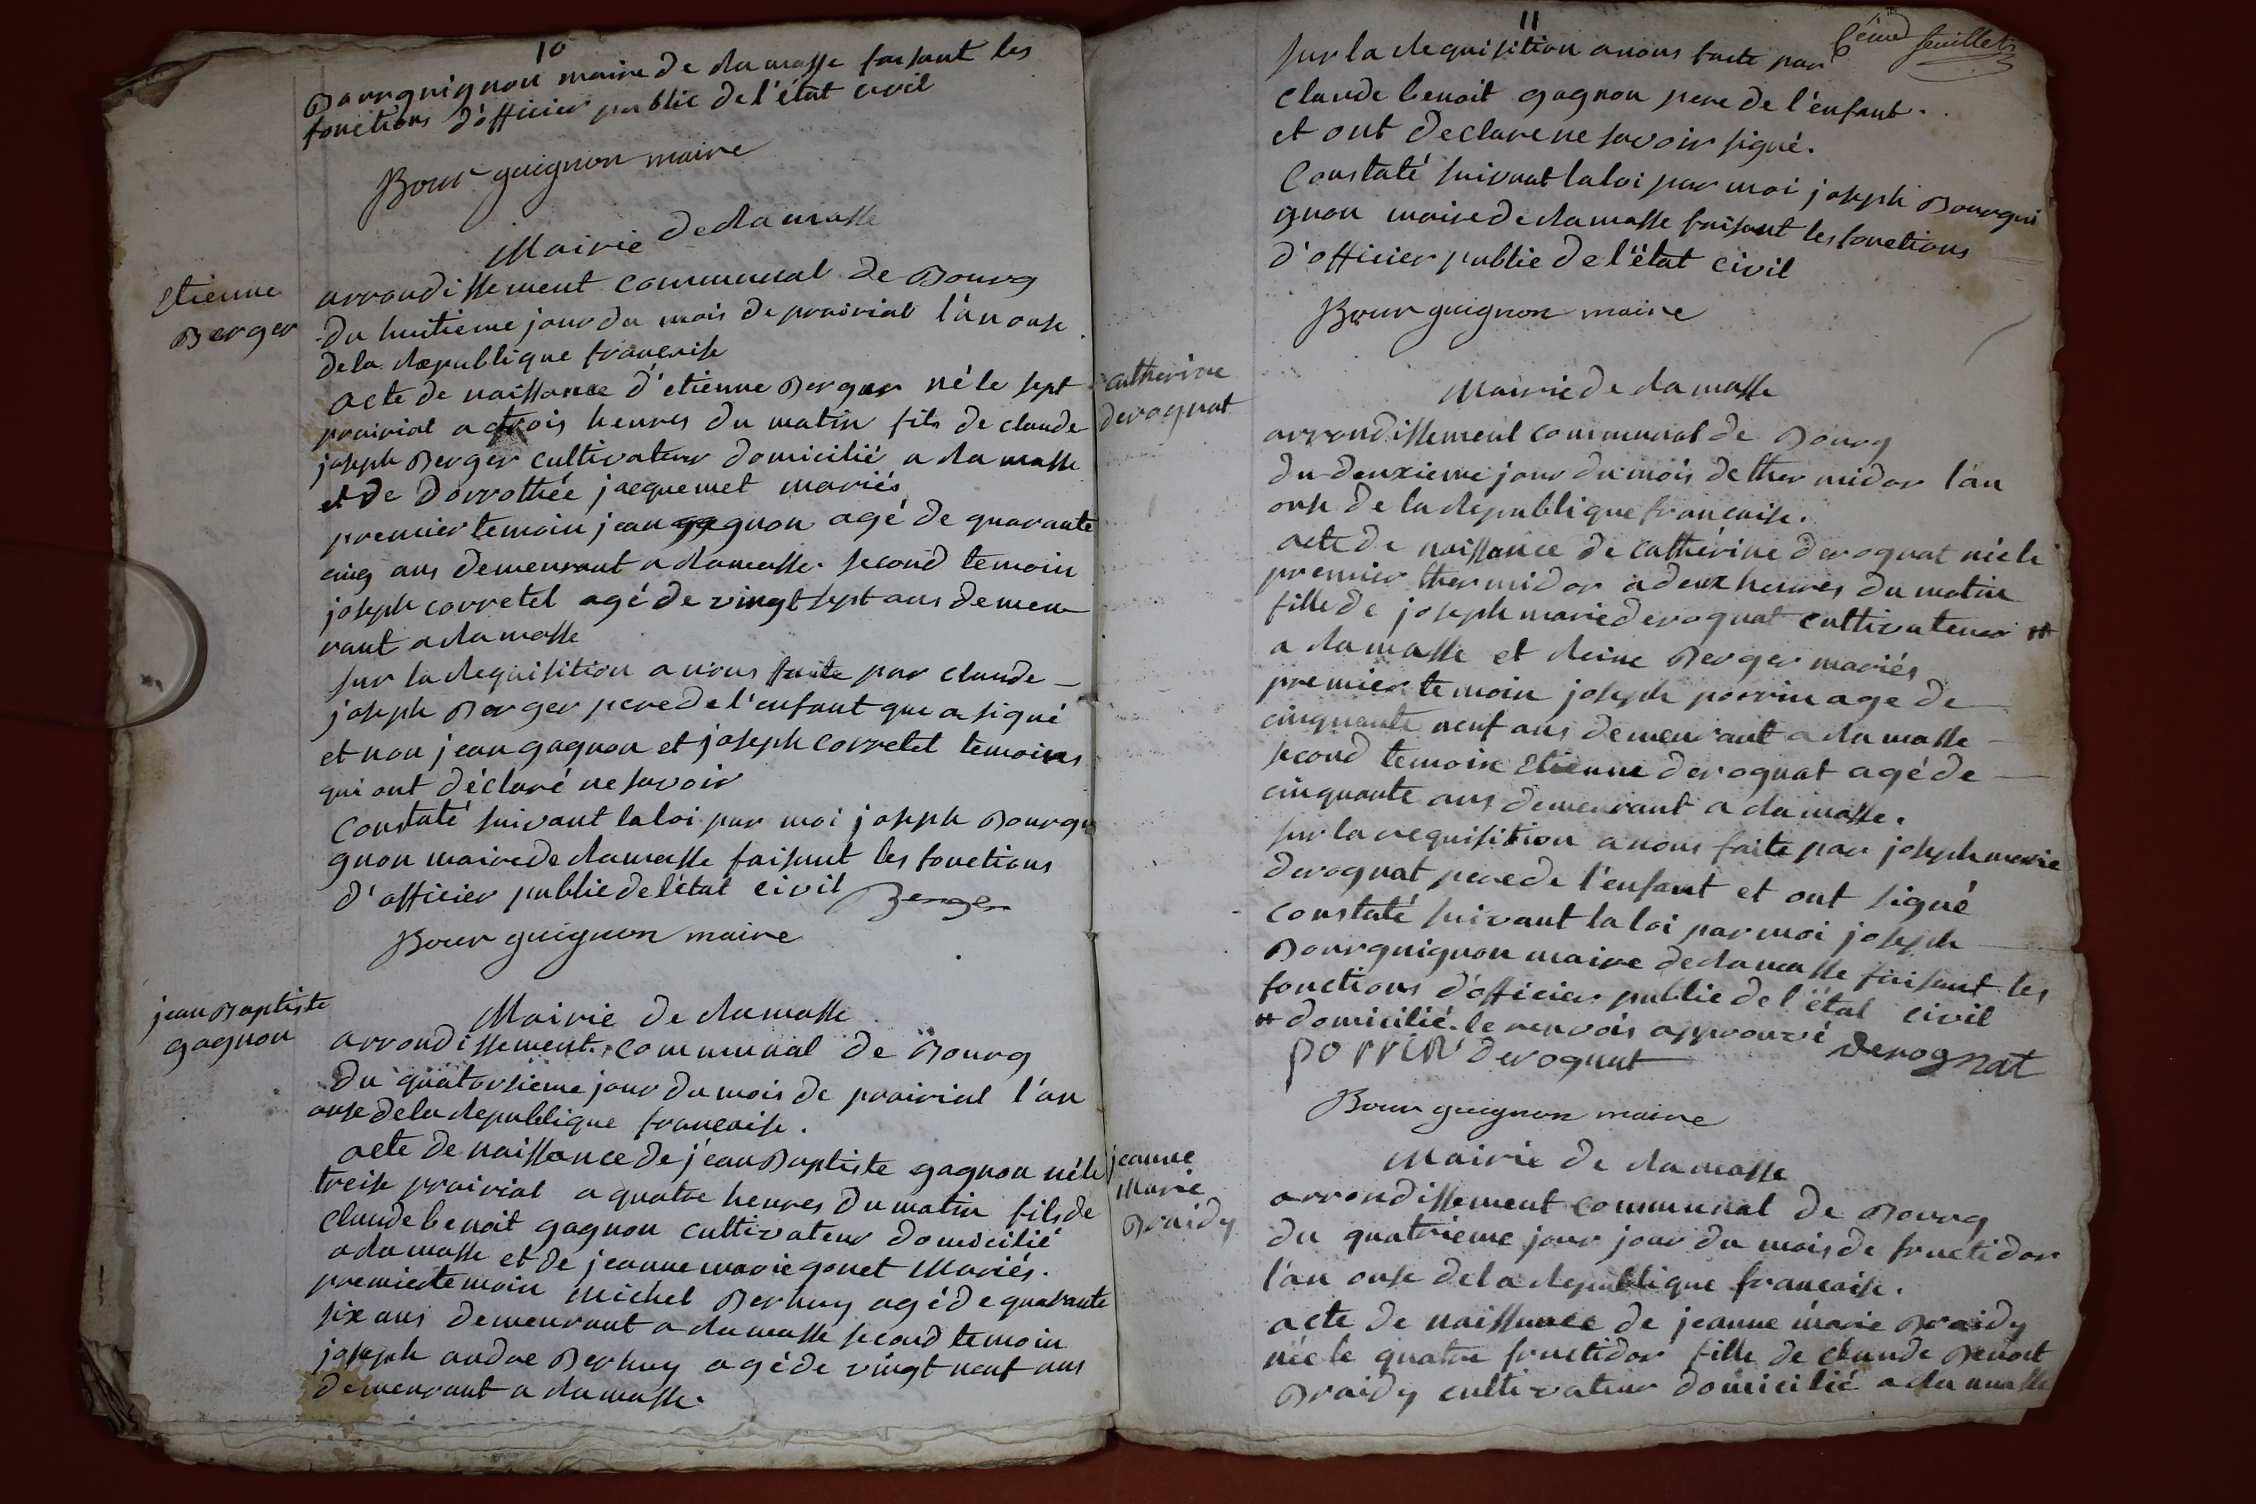 10
Bourguignon maire de Ramasse faisant les
fonctions d'officier public de l'état civil
Bourguignon maire
Mairie de Ramasse
etienne
Berger
arrondissement communal de Bourg
du huitieme jour du mois de prairial l'an onse
de la Republique francaise
acte de naissance d'etienne Berger né le sept
prairial a trois heures du matin fils de claude
joseph Berger cultivateur domicilié a Ramasse
et de Dorrothée jacquemet mariés
premier temoin jean gagnon agé de quarante
cinq ans demeurant a Ramasse. second temoin
joseph corretel agé de vingt sept ans demeu
rant a Ramasse
sur la Requisition a nous faite par claude
joseph Berger pere de l'enfant que a signé
et non jean gagnon et joseph corretel temoins
qui ont déclaré ne savoir
Constaté suivant la loi par moi joseph Bourgui
gnon maire de Ramasse faisant les fonctions
d'officier public de l'état civil Berger
Bourguignon maire
jean Baptiste
gagnon
Mairie de Ramasse
arrondissement communal de Bourg
Du quatorsieme jour du mois de prairial l'an
onse de la Republique francaise.
acte de naissance de jean Baptiste gagnon né le
treise prairial a quatre heures du matin fils de
Claude benoit gagnon cultivateur domicilié
a Ramasse et de jeanne marie gonet Mariés.
premier temoin Michel Berhuy agé de quarante
six ans demeurant a Ramasse second temoin
joseph andre Berhuy agé de vingt neuf ans
demeurant a Ramasse.
11
6eme feuillet
sur la Requisition a nous faite par
Claude benoit gagnon pere de l'enfant.
et ont declare ne savoir signé.
Constaté suivant la loi par moi joseph Bourgui
gnon maire de Ramasse faisant les fonctions
d'officier public de l'état civil
Bourguignon maire
catherine
derognat
Mairie de Ramasse
arrondissement communal de Bourg
du deuxieme jour du mois de thermidor l'an
onse de la Republique francaise.
acte de naissance de cathérine derognat née le
premier thermidor a deux heures du matin
fille de joseph marie derognat cultivateur #
a Ramasse et Reine Berger mariés
premier temoin joseph porrin age de
cinquante neuf ans demeurant a Ramasse
second temoin Etienne derognat agé de
cinquante ans demeurant a Ramasse.
sur la requisition a nous faite par joseph marie
derognat pere de l'enfant et ont signé
constaté suivant la loi par moi joseph
Bourguignon maire de Ramasse faisant les
fonctions d'officier public de l'état civil
# domicilié. le renvois approuvé
porrin derognat derognat
Bourguignon maire
jeanne
Marie
Braidy
Mairie de Ramasse
arrondissement communal de Bourg
du quatrieme jour jour du mois de fructidor
l'an onse de la Republique francaise.
acte de naissance de jeanne marie Braidy
née le quatre fructidor fille de claude Benoit
Braidy cultivateur domicilié a Ramasse